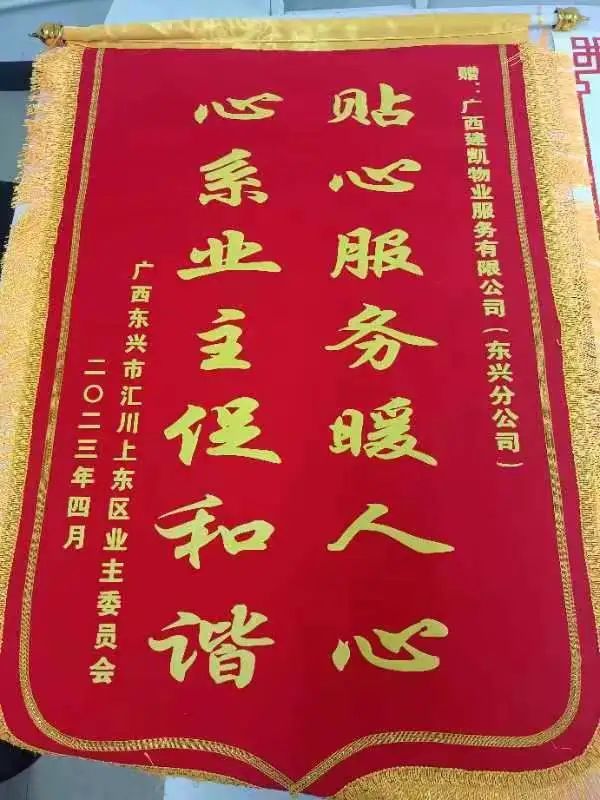 赠：广西建凯物业服务有限公司（东兴分公司）
贴心服务暖人心
心系业主促和谐
广西东兴市汇川上东区业主委员会
二〇二三年四月